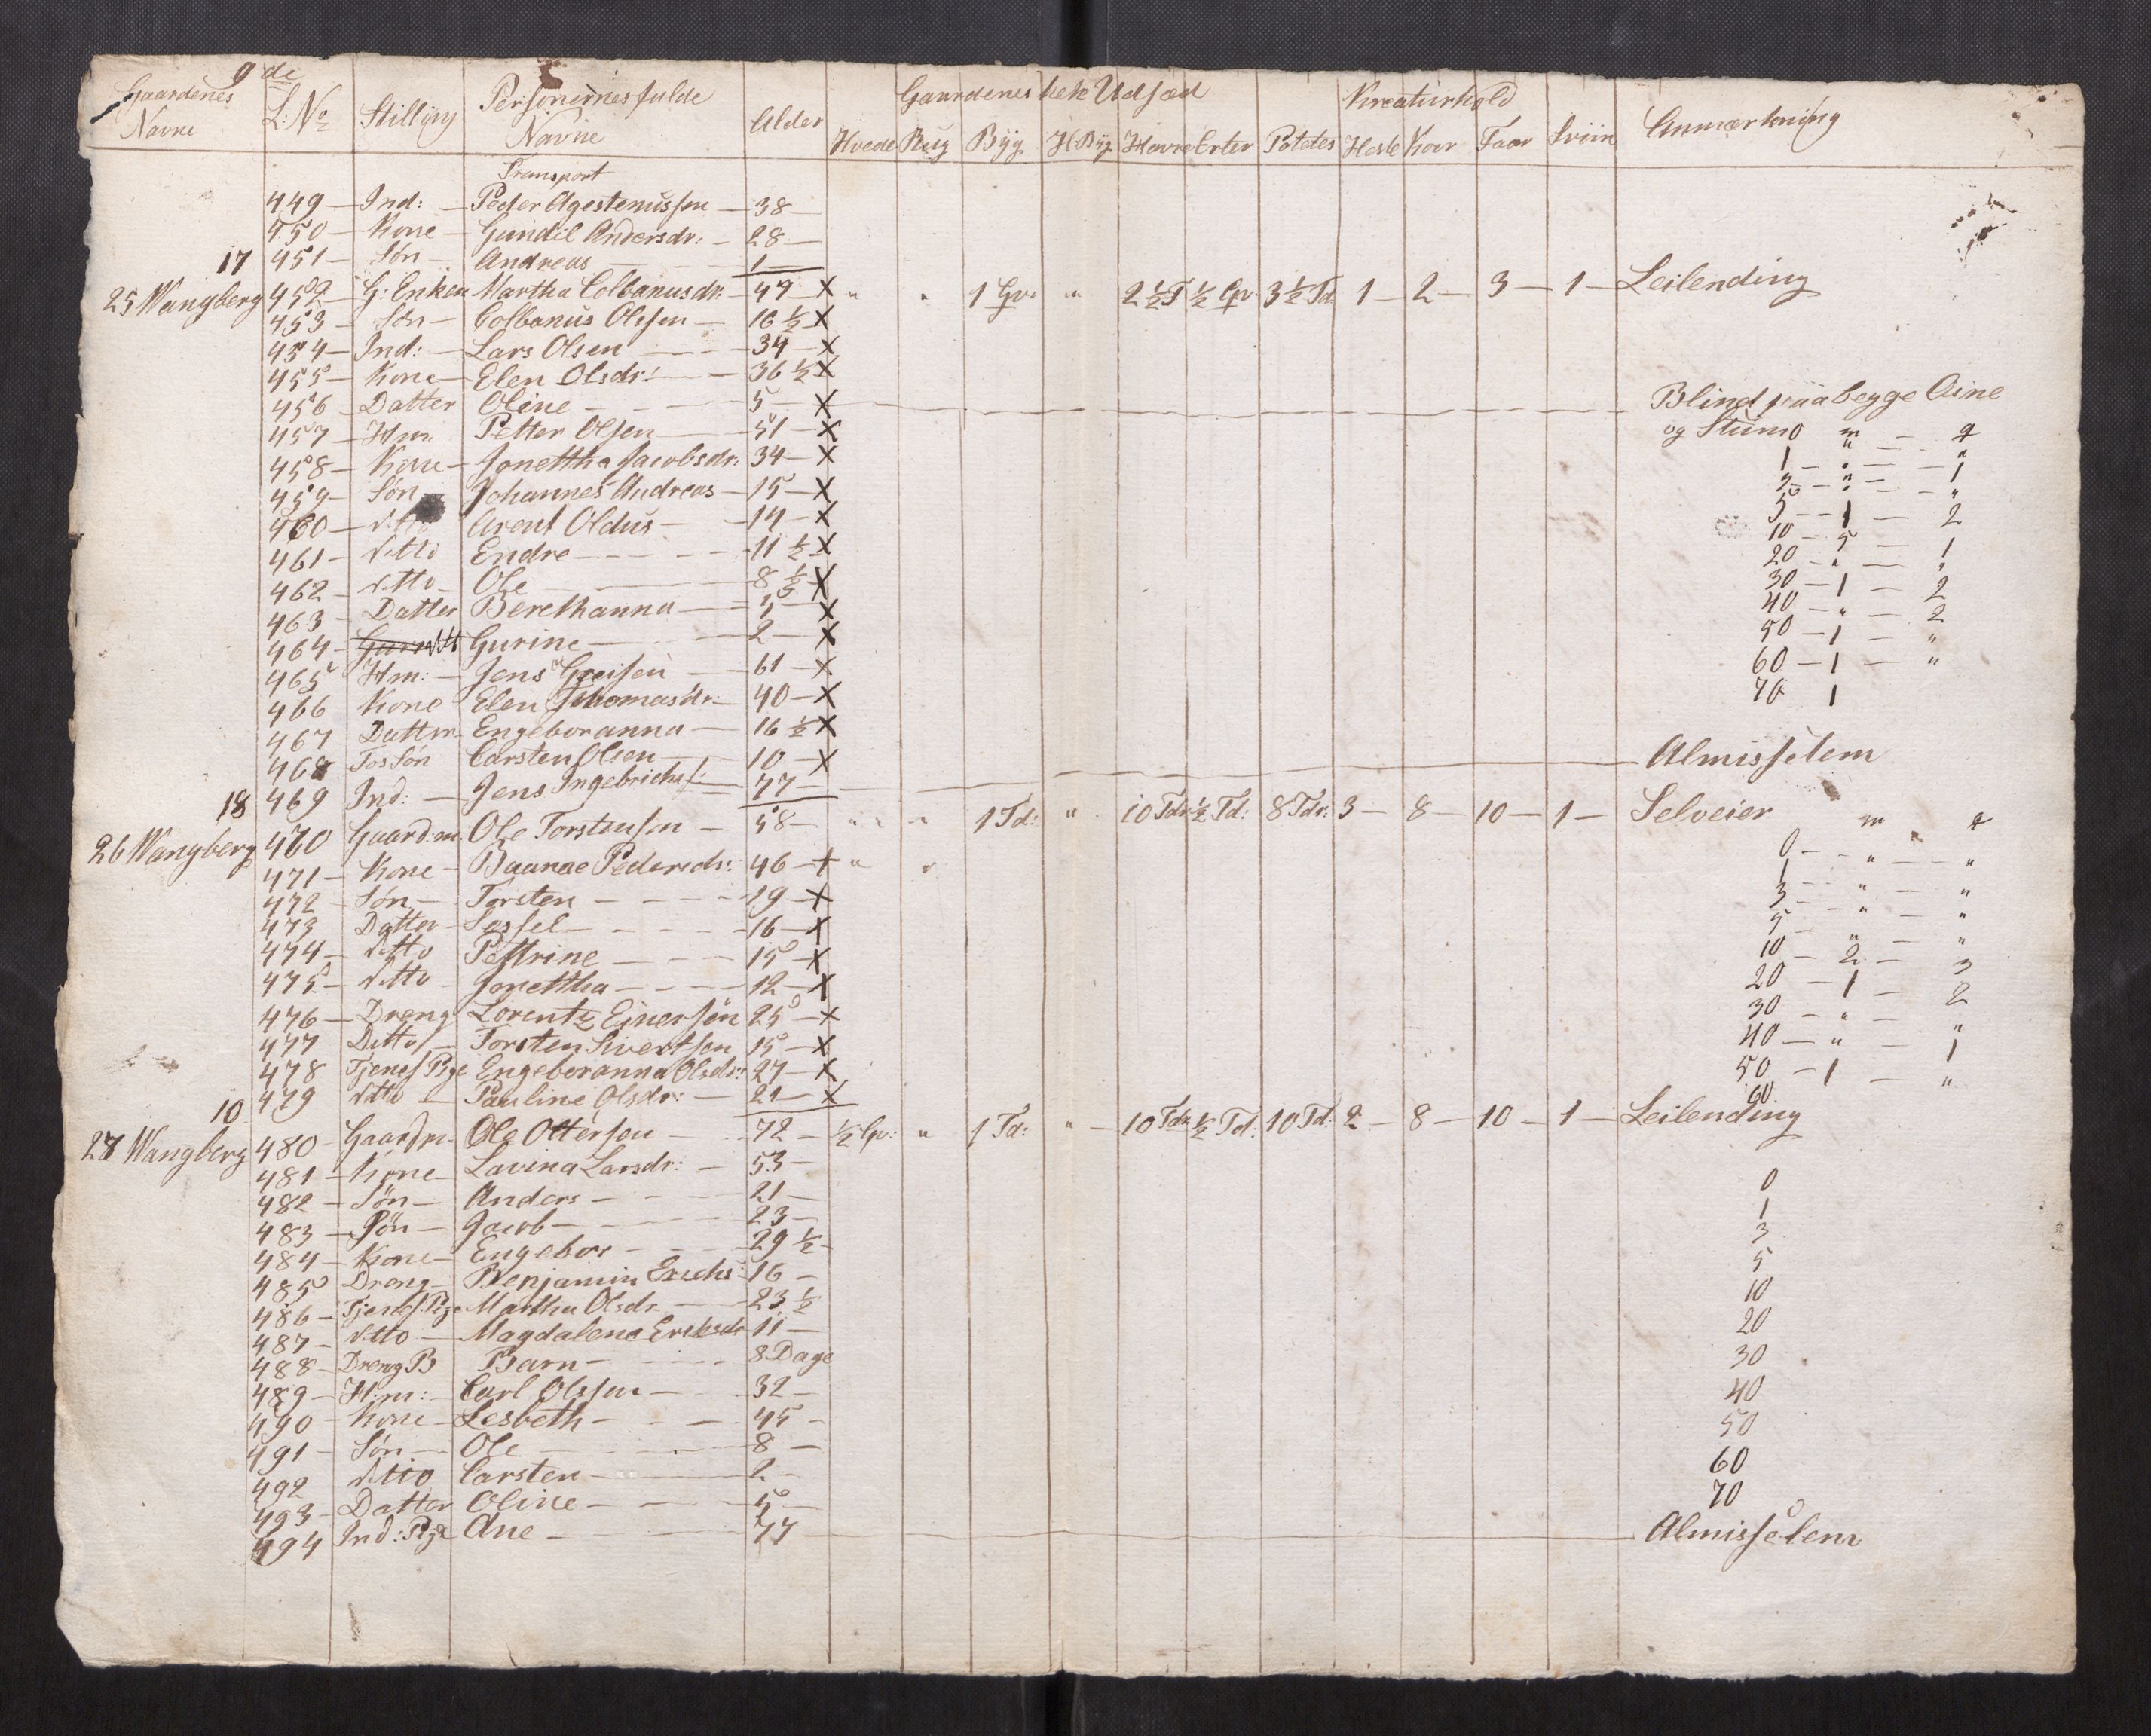 9de
Gaardenes Navne | L: No | Stilling | Personernes fulde Navne | Alder | Gaardenes hele Udsæd: Hvede | Rug | Byg | H:Byg | Havre | Erter | Potetes | Kreaturhold: Heste | Kør | Faar | Sviin | Anmærkning
Transport
449 — Ind: — Peder Agestenussen — 38 —
450 — Kone — Gundil Andersdr: — 28 —
17 451 — Søn — Andreas — 1 —
25 Wangberg 452 — G: Enken Martha Colbanusdr. — 49 — X " " 1 Qv: " 2½ T ½ Qv 3½ Td 1 — 2 — 3 — 1 — Leilending
453 — Søn — Colbanus Olssen — 16½ X
454 — Ind: — Lars Olsen — 34 — X
455 — Kone — Elen Olsdr: — 36½ X
456 — Datter Oline — 5 — X — Blind paa begge Øine
457 — Hm. Petter Olsen — 51 — X og Stum 0 m — q
458 — Kone — Jonettha Jacobsdr: 34 — X 1 — " — "
459 — Søn — Johannes Andreas — 15 — X 3 — " — 1
460 — ditto Arent Oldus — 14 — X 5 — " — "
461 — ditto Endre — 11½ X 10 — 1 — 2
462 — ditto — Ole — 8½ X 20 — 5 — 1
463 — Datter Berethanna — X 30 — " — "
464 — Gurine — 2 — X 40 — 1 — 2
465 Hm: — Jens — 61 — X 50 — " — 2
466 Kone Elen Thomasdr — 40 — X 60 — 1 — "
467 Datter Engeboranna — 16½ X 70 1 — "
468 Fos Søn Carsten Olsen — 10 — X Almisselem
18 469 Ind: — Jens Ingebrichs: — 77 —
26 Wangberg 470 Gaardm. Ole Torstensen — 58 — " " " 1 Td: " 10 Tdr ½ Td: 8 Tdr: 3 — 8 — 10 — 1 — Selveier
471 — Kone — Baanae Pedersdr: 46 — + " " m q
472 — Søn — Torsten — 19 — X 0 — " — "
473 Datter — Sessel — 16 — X 1 — " — "
474 — ditto Pettrine — 15 — X 3 — " — "
475 — ditto Jonettha — 12 — X 5 — " — "
476 — Dreng Lorentz Einersen 25 — X 10 — 2 — 3
477 Ditto — Torsten Sivertsen 15 — X 20 — 1 — 2
478 Tjenes Pige Engeboranna Olsdr: 27 — X 30 — " — "
10 479 ditto — Pauline Olsdr: — 21 — X 40 — " — 1
50 — 1 — "
60
27 Wangberg 480 — Gaardm. Ole Ottersen — 72 — ½ Qv: " 1 Td: " — 10 Tdr ½ Td: 10 Td: 2 — 8 — 10 — 1 — Leilending
481 — Kone — Lavina Larsdr: — 53 — 0
482 — Søn — Anders — 21 — 1
483 — Søn — Jacob — 23 — 3
484 — Kone — Engebor — 29½ 5
485 Dreng — Benjamin Erichs: 16 — 10
486 — Tjenes. Pige Martha Olsdr. — 23½ 20
487 — ditto — Magdalena Eriksdr 11 — 30
488 — Dreng B Barn — 8 Dage 40
489 — Hm: — Carl Olssen — 32 — 50
490 — Kone — Lesbeth — 45 — 60
491 — Søn — Ole — 8 — 70
492 ditto Carsten — 2 —
493 — Datter Oline — 5 —
494 Ind: Pige Ane — 77 — Almisselem